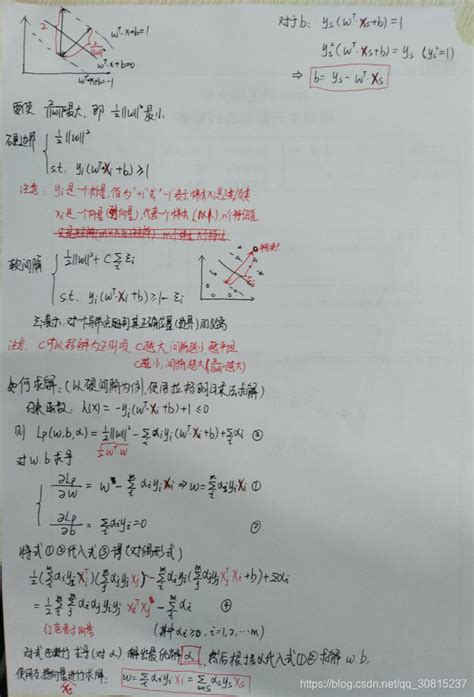 2
w^T·x+b=1
2/||w||
w^T·x+b=0
w^T·x+b=-1
对于b: y_s(w^T·x_s+b)=1
y_s²(w^T·x_s+b)=y_s (y_s²=1)
⇒ b=y_s-w^T·x_s
要使 2/||w||最大, 即 ½||w||²最小.
硬边界 { ½||w||²
s.t. y_i(w^T·x_i+b)≥1
注意: y_i是一个标量, 值为"+1"或"-1"
x_i是一个向量(列向量), 代表一个样本
软间隔 { ½||w||²+C∑ξ_i
s.t. y_i(w^T·x_i+b)≥1-ξ_i
ξ_i表示: 对一个异常点回到其正确位置(边界)的距离
注意: C可以理解为正则项, C越大, 间隔越小,
C越小, 间隔越大
如何求解: (以硬间隔为例, 使用拉格朗日乘法求解)
约束函数: h(x)=-y_i(w^T·x_i+b)+1≤0
则 Lp(w.b,α)=½||w||²-∑α_iy_i(w^T·x_i+b)+∑α_i ③
½w^T·w
对w.b求导
{ ∂Lp/∂w = w-∑α_iy_ix_i ⇒ w=∑α_iy_ix_i ①
∂Lp/∂b = ∑α_iy_i=0 ②
将式①②代入式③得(对偶形式)
½(∑α_iy_ix_i^T)(∑α_jy_jx_j)-∑α_iy_i(∑α_jy_jx_j^Tx_i+b)+∑α_i
=½∑∑α_iα_jy_iy_jx_i^Tx_j-∑α_i ④
红色表示向量 (其中α_i≥0, i=1,2,…m)
对式④进行求导(对α), 解出最优解α, 然后根据α代入式①②求解w.b,
使用支持向量进行求解: w=∑α_iy_ix_i=∑α_sy_sx_s
x_s
https://blog.csdn.net/qq_30815237